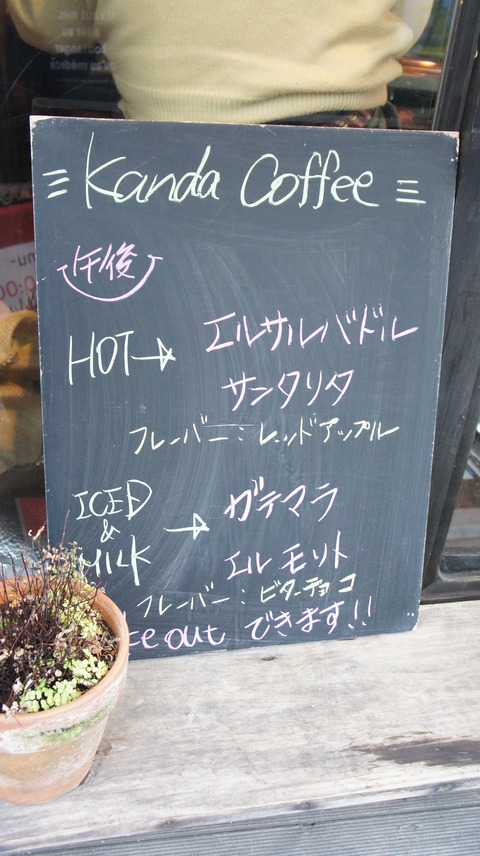 Kanda Coffee
午後
HOT → エルサルバドル
サンタリタ
フレーバー：レッドアップル
ICED & MILK → ガテマラ
エルモリト
フレーバー：ビターチョコ
out できます!!